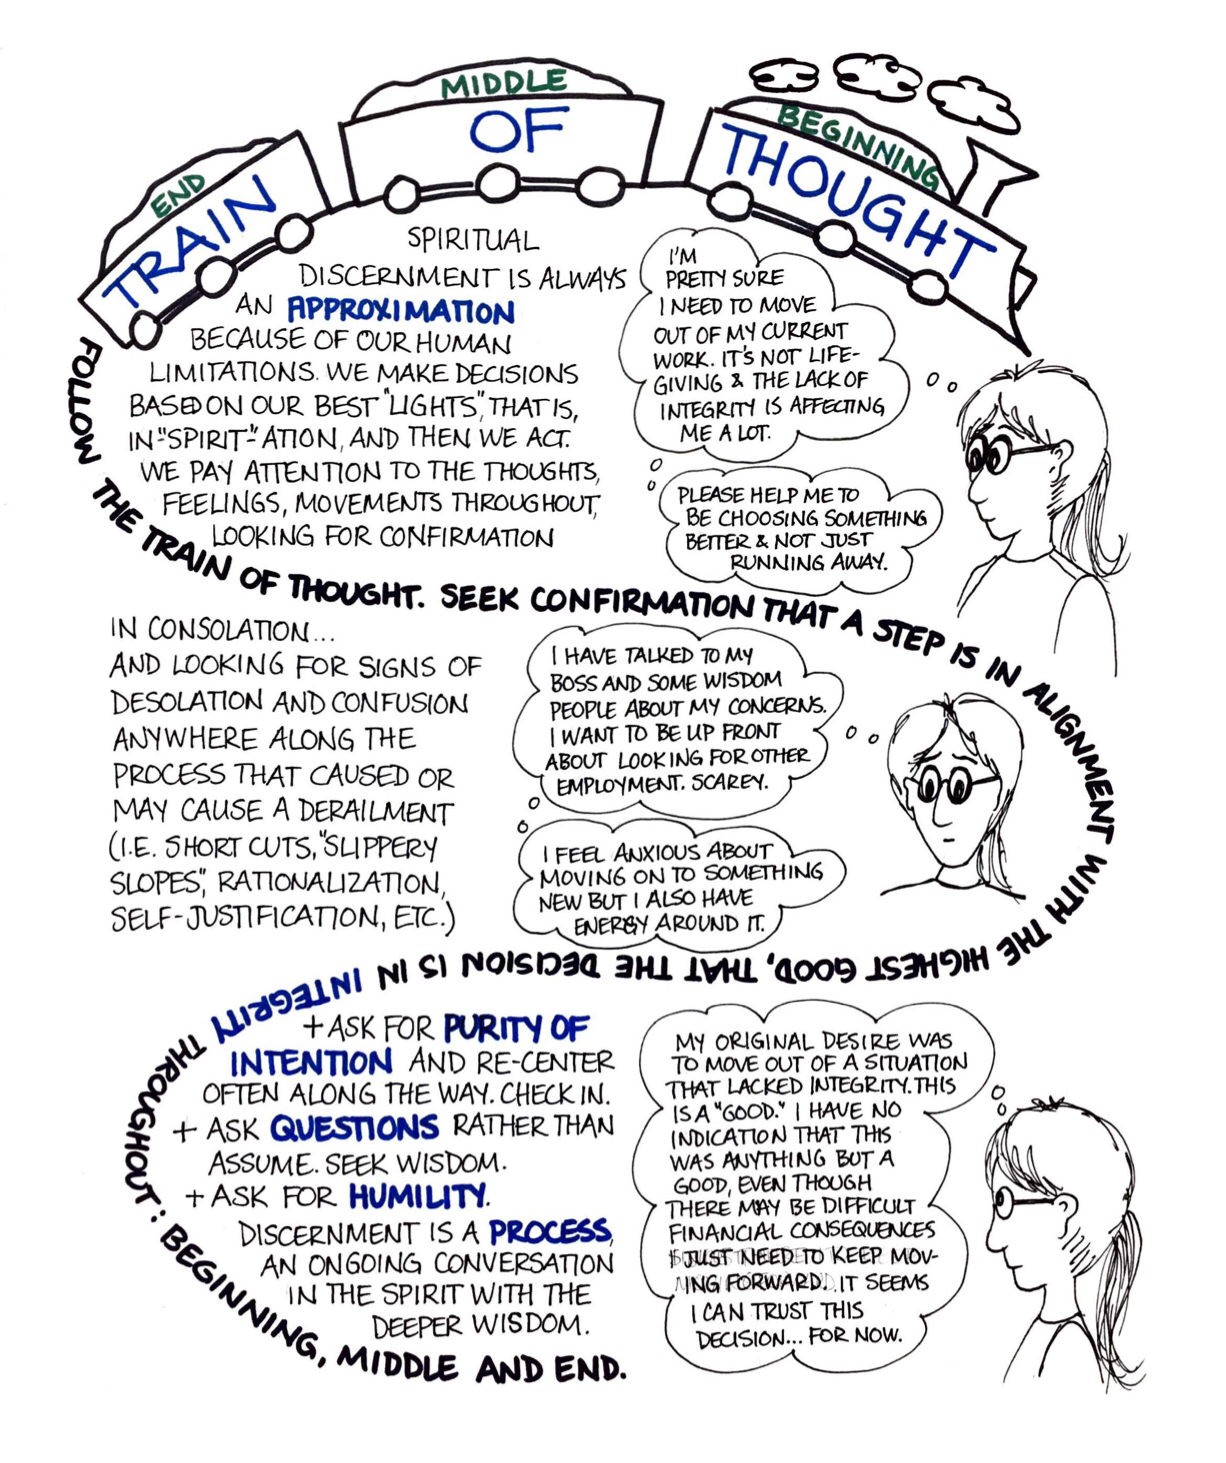 END
MIDDLE
BEGINNING
TRAIN
OF
THOUGHT
SPIRITUAL
DISCERNMENT IS ALWAYS
AN APPROXIMATION
BECAUSE OF OUR HUMAN
LIMITATIONS. WE MAKE DECISIONS
BASED ON OUR BEST "LIGHTS", THAT IS,
IN-"SPIRIT"-ATION, AND THEN WE ACT.
WE PAY ATTENTION TO THE THOUGHTS,
FEELINGS, MOVEMENTS THROUGHOUT,
LOOKING FOR CONFIRMATION
I'M
PRETTY SURE
I NEED TO MOVE
OUT OF MY CURRENT
WORK. IT'S NOT LIFE-
GIVING & THE LACK OF
INTEGRITY IS AFFECTING
ME A LOT.
PLEASE HELP ME TO
BE CHOOSING SOMETHING
BETTER & NOT JUST
RUNNING AWAY.
FOLLOW THE TRAIN OF THOUGHT. SEEK CONFIRMATION THAT A STEP IS IN ALIGNMENT WITH THE HIGHEST GOOD, THAT THE DECISION IS IN INTEGRITY THROUGHOUT: BEGINNING, MIDDLE AND END.
IN CONSOLATION...
AND LOOKING FOR SIGNS OF
DESOLATION AND CONFUSION
ANYWHERE ALONG THE
PROCESS THAT CAUSED OR
MAY CAUSE A DERAILMENT
(I.E. SHORT CUTS, "SLIPPERY
SLOPES", RATIONALIZATION,
SELF-JUSTIFICATION, ETC.)
I HAVE TALKED TO MY
BOSS AND SOME WISDOM
PEOPLE ABOUT MY CONCERNS.
I WANT TO BE UP FRONT
ABOUT LOOKING FOR OTHER
EMPLOYMENT. SCAREY.
I FEEL ANXIOUS ABOUT
MOVING ON TO SOMETHING
NEW BUT I ALSO HAVE
ENERGY AROUND IT.
+ ASK FOR PURITY OF
INTENTION AND RE-CENTER
OFTEN ALONG THE WAY. CHECK IN.
+ ASK QUESTIONS RATHER THAN
ASSUME. SEEK WISDOM.
+ ASK FOR HUMILITY.
DISCERNMENT IS A PROCESS,
AN ONGOING CONVERSATION
IN THE SPIRIT WITH THE
DEEPER WISDOM.
MY ORIGINAL DESIRE WAS
TO MOVE OUT OF A SITUATION
THAT LACKED INTEGRITY. THIS
IS A "GOOD." I HAVE NO
INDICATION THAT THIS
WAS ANYTHING BUT A
GOOD, EVEN THOUGH
THERE MAY BE DIFFICULT
FINANCIAL CONSEQUENCES
I JUST NEED TO KEEP MOV-
ING FORWARD. IT SEEMS
I CAN TRUST THIS
DECISION... FOR NOW.